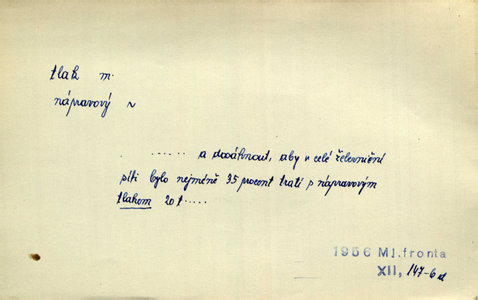 tlak m.
nápravový ~
...... a dosáhnout, aby v celé železniční
síti bylo nejméně 35 procent tratí s nápravovým
tlakem 20 t.....
1956 Ml.fronta
XII, 147-6d